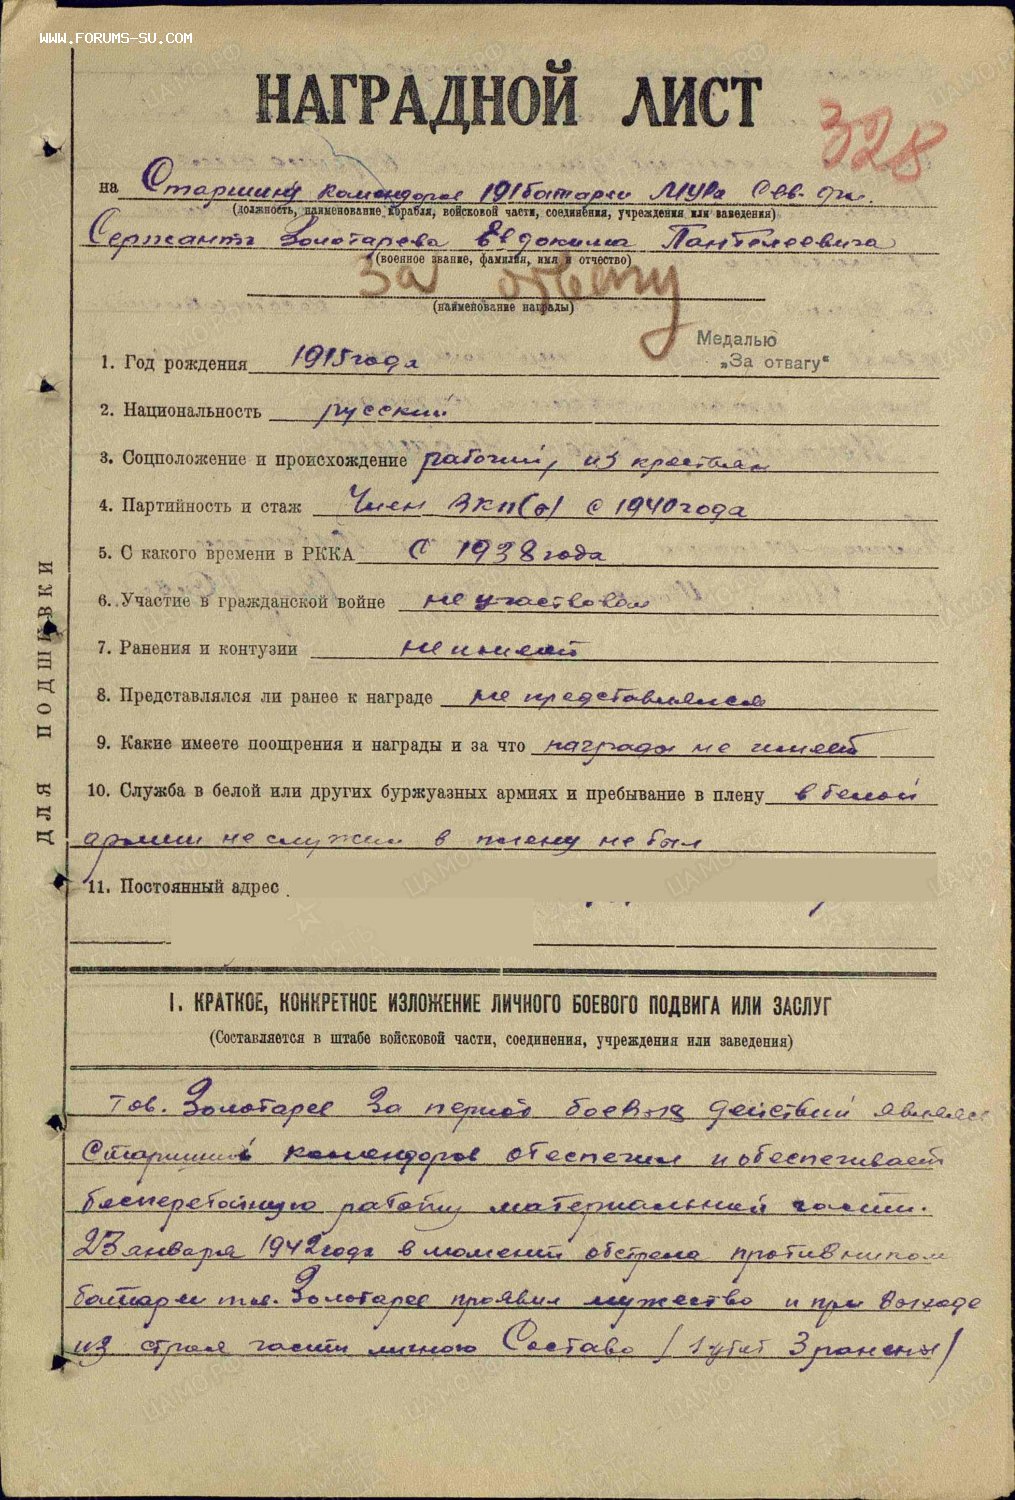 WWW.FORUMS-SU.COM
НАГРАДНОЙ ЛИСТ
328
на Старшину комендоров 191 батареи МУРа Сев. фл.
(должность, наименование корабля, войсковой части, соединения, учреждения или заведения)
Сержанта Золотарева Евдокима Пантелеевича
(военное звание, фамилия, имя и отчество)
За отвагу
(наименование награды)
Медалью
„За отвагу"
1. Год рождения 1915 года
2. Национальность русский
3. Соцположение и происхождение рабочий, из крестьян
4. Партийность и стаж Член ВКП(б) с 1940 года
5. С какого времени в РККА С 1938 года
6. Участие в гражданской войне не участвовал
7. Ранения и контузии не имеет
8. Представлялся ли ранее к награде не представлялся
9. Какие имеете поощрения и награды и за что награды не имеет
10. Служба в белой или других буржуазных армиях и пребывание в плену в белой
армии не служил в плену не был
11. Постоянный адрес
ДЛЯ ПОДШИВКИ
I. КРАТКОЕ, КОНКРЕТНОЕ ИЗЛОЖЕНИЕ ЛИЧНОГО БОЕВОГО ПОДВИГА ИЛИ ЗАСЛУГ
(Составляется в штабе войсковой части, соединения, учреждения или заведения)
Тов. Золотарев за период боевых действий являясь
Старшиной комендоров обеспечил и обеспечивает
бесперебойную работу материальной части.
23 января 1942 года в момент обстрела противником
батареи тов. Золотарев проявил мужество и при выходе
из строя части личного Состава / 1 убит 3 ранены /